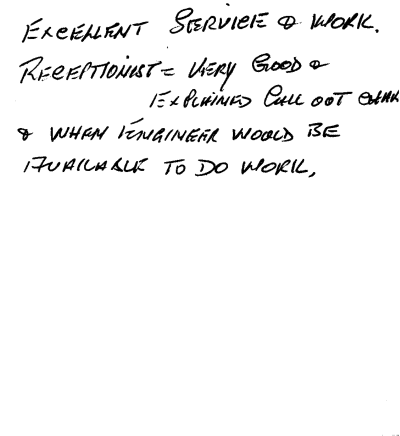 EXCELLENT SERVICE & WORK.
RECEPTIONIST = VERY GOOD &
EXPLAINED CALL OUT
& WHEN ENGINEER WOULD BE
AVAILABLE TO DO WORK.